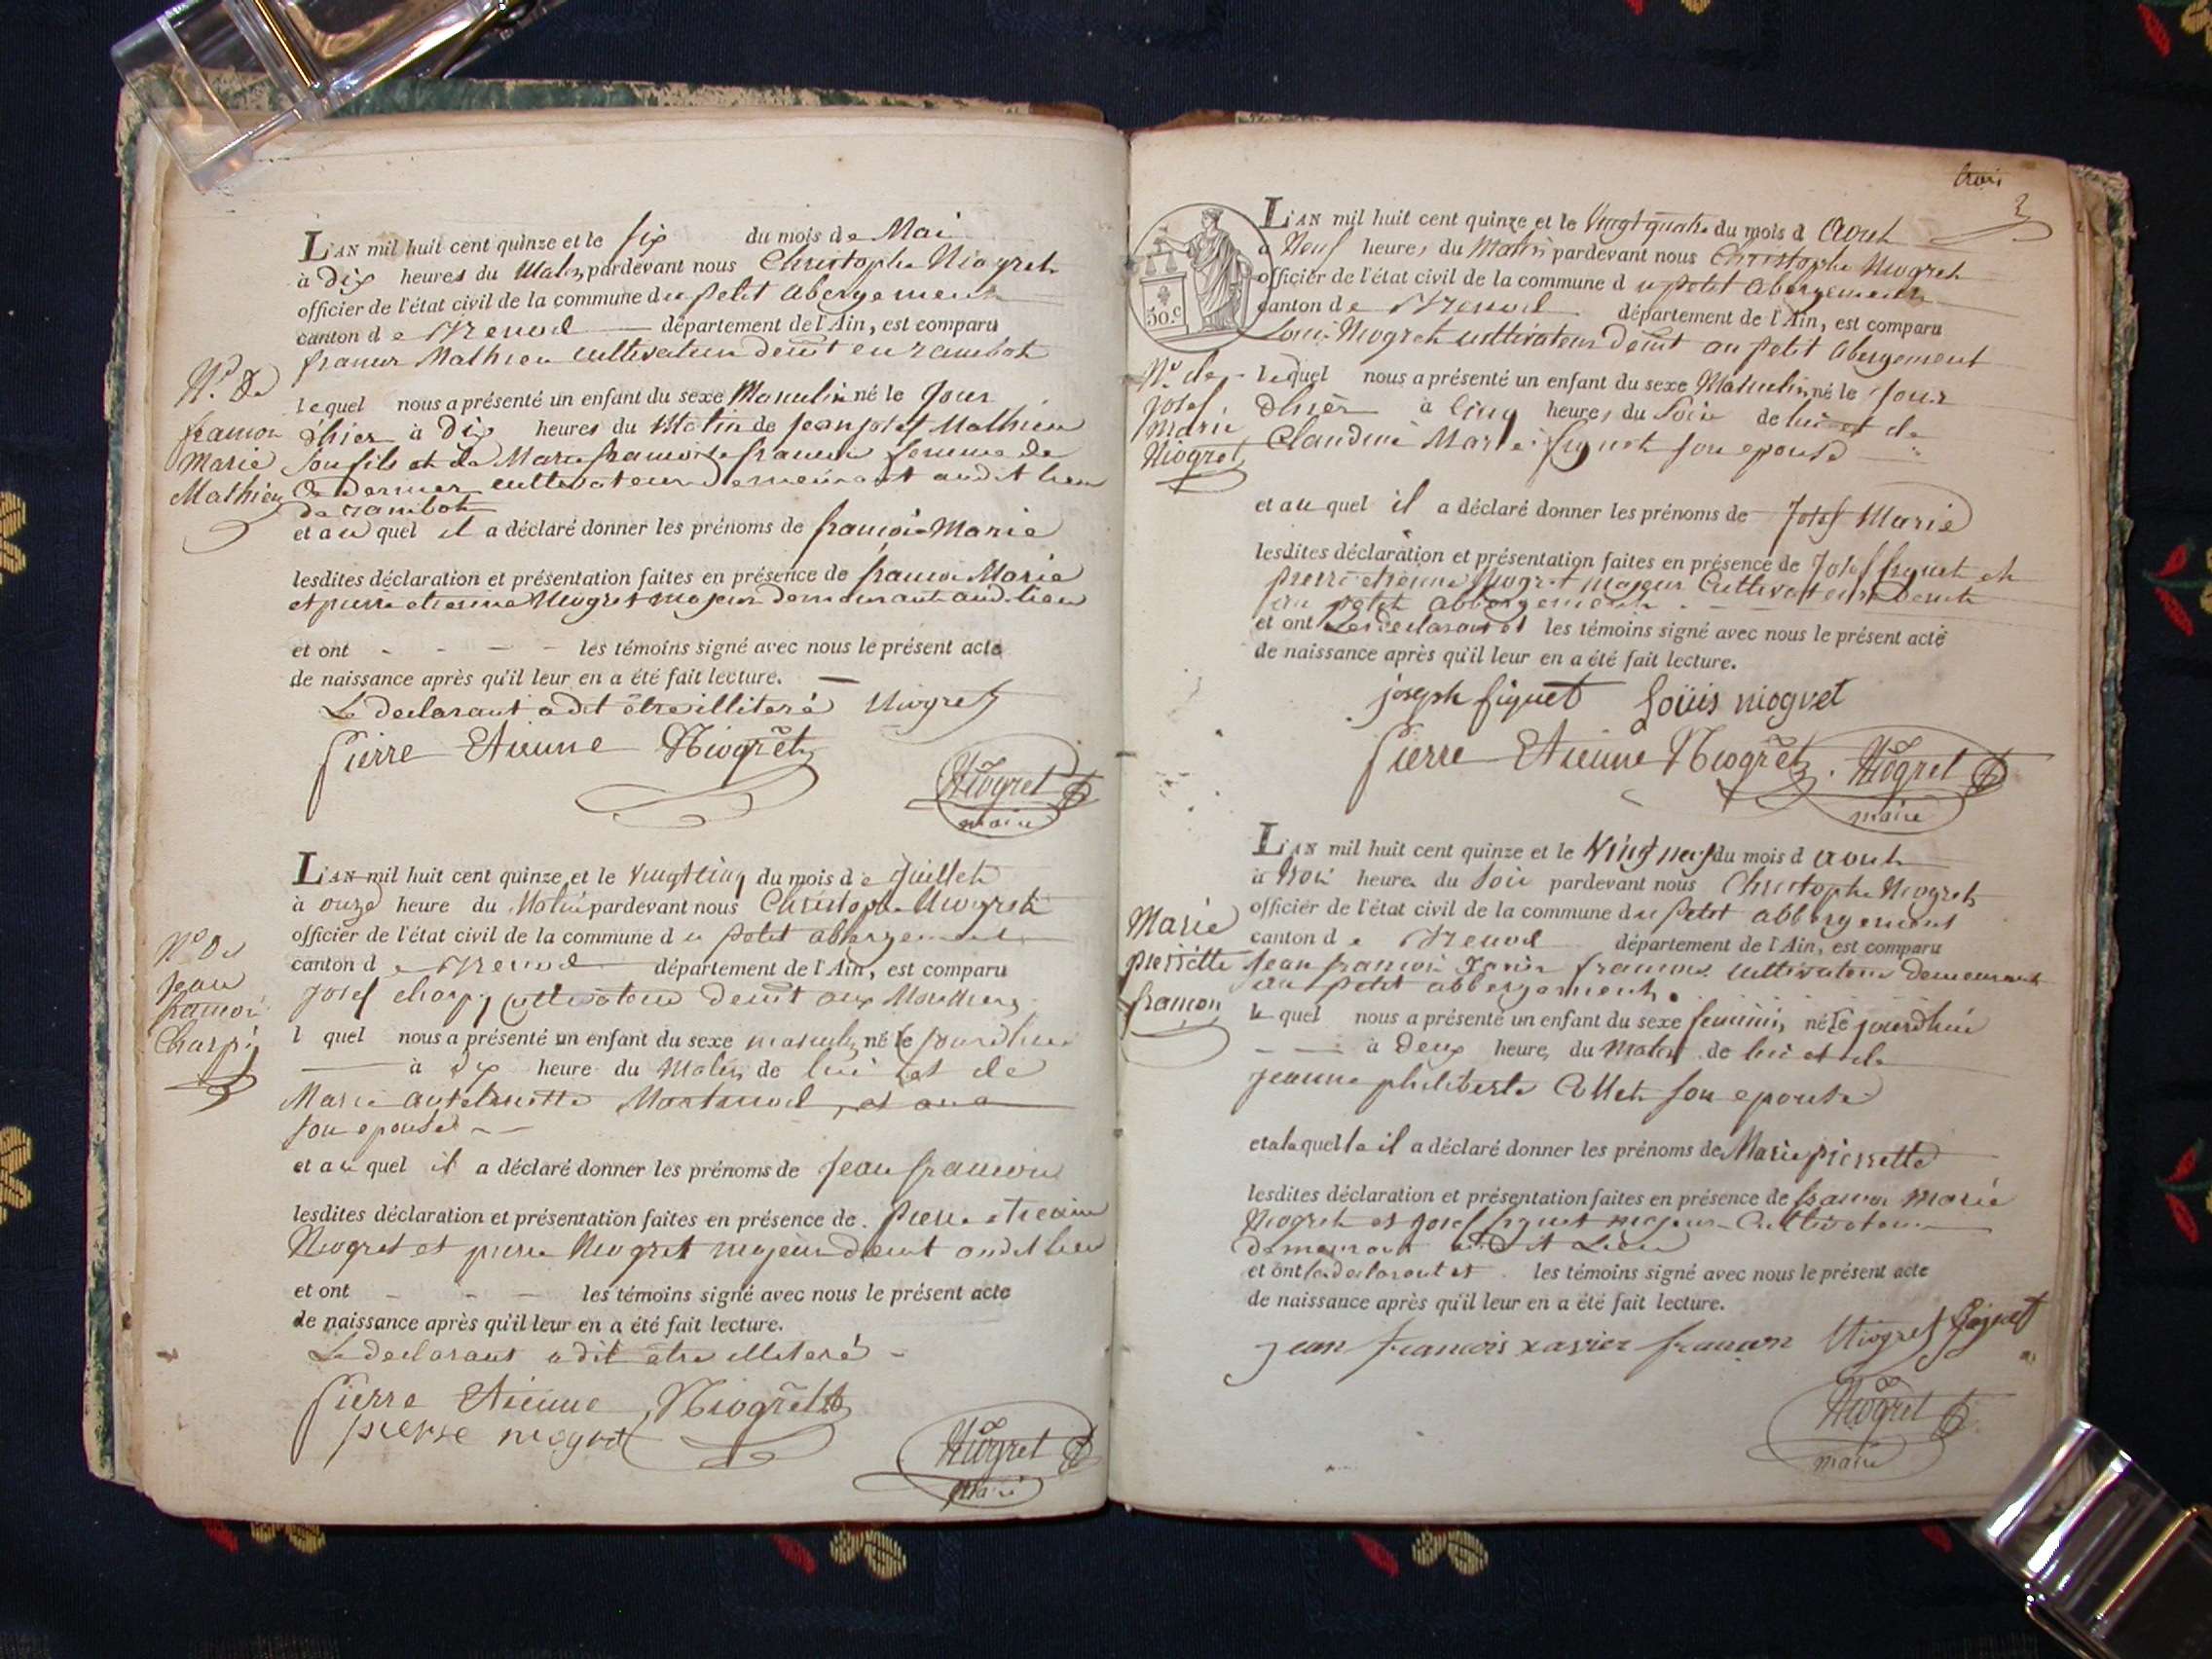 L'AN mil huit cent quinze et le six du mois de Mai
à dix heures du Matin pardevant nous Christophe Niogret
officier de l'état civil de la commune du petit abergement
canton de Brenod département de l'Ain, est comparu
Mathieu cultivateur demt en
lequel nous a présenté un enfant du sexe Masculin né le Jour
d'hier à dix heures du Matin de jean josef Mathieu
son fils et de Marie francoise femme de
ce dernier cultivateur demeurant audit lieu
et au quel il a déclaré donner les prénoms de francois Marie
lesdites déclaration et présentation faites en présence de francois Marie
et pierre etienne Niogret majeur demeurant aud. lieu
et ont les témoins signé avec nous le présent acte
de naissance après qu'il leur en a été fait lecture.
Le declarant a dit être illiteré Niogret
Pierre Etienne Niogret
Niogret
maire
N.º De
francois
Marie
Mathieu
L'AN mil huit cent quinze et le vingt cinq du mois de Juillet
à onze heure du Matin pardevant nous Christophe Niogret
officier de l'état civil de la commune du petit abbergement
canton de Brenod département de l'Ain, est comparu
Josef charpy cultivateur demt aux
l quel nous a présenté un enfant du sexe masculin né le jourdhui
à dix heure du Matin de lui et de
Marie
son epouse
et au quel il a déclaré donner les prénoms de Jean francois
lesdites déclaration et présentation faites en présence de pierre etienne
Niogret et pierre Niogret majeur demt audit lieu
et ont les témoins signé avec nous le présent acte
de naissance après qu'il leur en a été fait lecture.
Le declarant a dit être illiteré
Pierre Etienne Niogret
pierre niogret
Niogret
maire
Nº De
jean
francois
Charpy
trois
3
50.c
L'AN mil huit cent quinze et le Vingt quatre du mois d Aout
à Neuf heures du Matin pardevant nous Christophe Niogret
officier de l'état civil de la commune du petit abergement
canton de Brenod département de l'Ain, est comparu
Louis Niogret cultivateur demt au petit abergement
lequel nous a présenté un enfant du sexe Masculin né le jour
dhier à cinq heures du Soir de lui et de
Claudine Marie figuet son epouse
et au quel il a déclaré donner les prénoms de Josef Marie
lesdites déclaration et présentation faites en présence de Josef figuet et
pierre etienne Niogret majeur Cultivateurs demt
au petit abbergement
et ont Le declarant et les témoins signé avec nous le présent acte
de naissance après qu'il leur en a été fait lecture.
joseph figuet Loüis niogret
Pierre Etienne Niogret Niogret
maire
N.º de
josef
marie
Niogret
L'AN mil huit cent quinze et le Vingt neuf du mois d aout
à trois heure du Soir pardevant nous Christophe Niogret
officier de l'état civil de la commune du petit abbergement
canton de Brenod département de l'Ain, est comparu
Jean francois Xavier francon cultivateur demeurant
au petit abbergement
le quel nous a présenté un enfant du sexe feminin né le jourdhui
à deux heure du Matin de lui et de
jeanne philiberte Collet son epouse
et a laquelle il a déclaré donner les prénoms de Marie pierrette
lesdites déclaration et présentation faites en présence de francois Marie
Niogret et josef figuet majeur Cultivateurs
demeurant audit Lieu
et ont le declarant et les témoins signé avec nous le présent acte
de naissance après qu'il leur en a été fait lecture.
jean francois xavier francon Niogret figuet
Niogret
maire
Marie
pierrette
francon